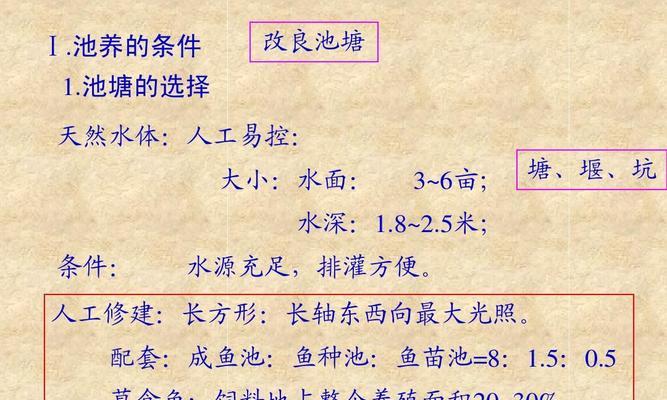 Ⅰ.池养的条件
改良池塘
1.池塘的选择
天然水体：人工易控：
大小：水面： 3~6亩；
塘、堰、坑
水深：1.8~2.5米；
条件： 水源充足，排灌方便。
人工修建：长方形：长轴东西向最大光照。
配套：成鱼池：鱼种池：鱼苗池=8：1.5：0.5
草食鱼：饲料地占整个养殖面积20~30%